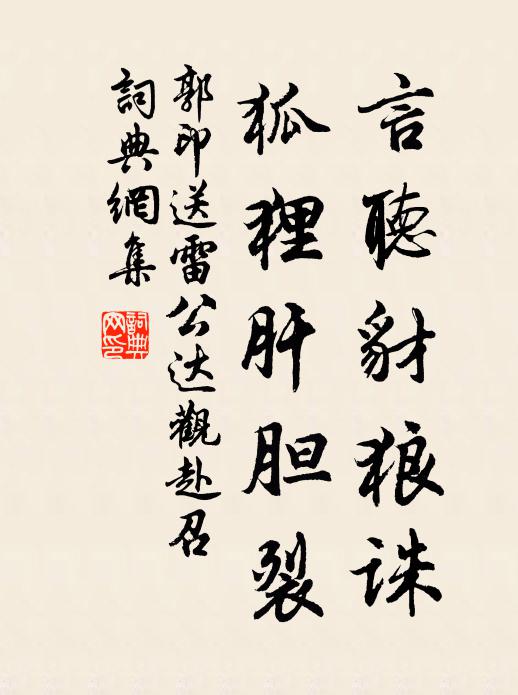 言聽豺狼誅
狐狸肝胆裂
郭印送雷公达觀赴召
詞典網集
詞典网印